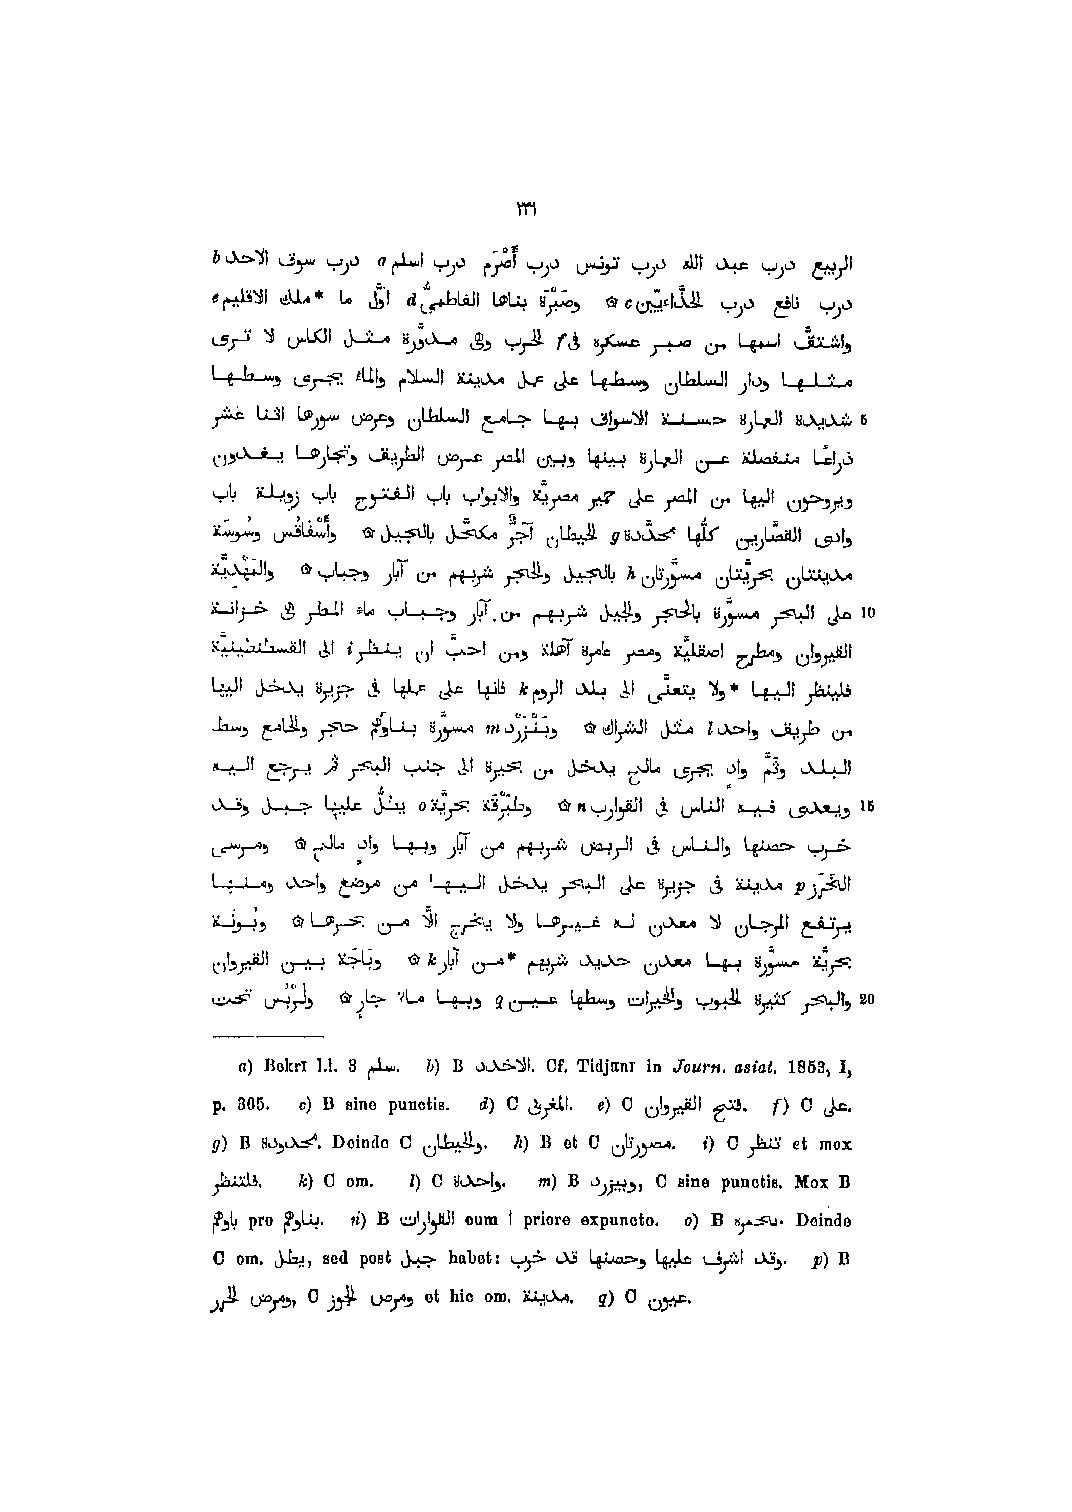 ٢٢٦
الربيع درب عبد الله درب تونس درب أَصْرَم درب اسلم a درب سوق الاحد b
درب نافع درب الحَذَّاءيّين c ۞ وصَبْرَة بناها الفاطمىُّ d اوَّل ما *ملك الاقليم e
واشتقَّ اسمها من صبر عسكره فى f الحرب وهى مدوَّرة مثل الكاس لا ترى
مثلها ودار السلطان وسطها على عمل مدينة السلام والماء يجرى وسطها
شديدة العمارة حسنة الاسواق بها جامع السلطان وعرض سورها اثنا عشر 5
ذراعًا منفصلة عن العمارة بينها وبين المصر عرض الطريق وتجارها يغدون
ويروحون اليها من المصر على حمير مصريَّة والابواب باب الفتوح باب زويلة باب
وادى القصَّارين كلُّها محدَّدة g الحيطان آجُرٌّ مكحَّل بالجيل ۞ وأَسْفَاقُس وسُوسَة
مدينتان بحريَّتان مسوَّرتان h بالجيل والحجر شربهم من آبار وجباب ۞ والمَهْدِيَّة
على البحر مسوَّرة بالحجر والجيل شربهم من آبار وجباب ماء المطر هى خزانة 10
القيروان ومطرح اصقليَّة ومصر عامرة آهلة ومن احبَّ ان ينظر i الى القسطنطينيَّة
فلينظر اليها *ولا يتعنَّى الى بلد الروم k فانها على عملها فى جزيرة يدخل اليها
من طريق واحد l مثل الشراك ۞ وبَنْزَرْد m مسوَّرة بناؤهم حجر والجامع وسط
البلد وثَمَّ وادٍ يجرى مالح يدخل من بحيرة الى جنب البحر ثم يرجع اليه
ويعدى فيه الناس فى القوارب n ۞ وطَبَرْقَة بحريَّة o يطلُّ عليها جبل وقد 15
خرب حصنها والناس فى الربض شربهم من آبار وبها وادٍ مالح ۞ ومرسى
الخَرَز p مدينة فى جزيرة على البحر يدخل اليها من موضع واحد ومنها
يرتفع المرجان لا معدن له غيرها ولا يخرج الَّا من بحرها ۞ وبُونَة
بحريَّة مسوَّرة بها معدن حديد شربهم *من آبار k ۞ وبَاجَة بين القيروان
والبحر كثيرة الحبوب والخيرات وسطها عين q وبها ماء جارٍ ۞ ولُرْبُس تحت 20
a) Bekrī l.l. 3 سلم. b) B الاخدد. Cf. Tidjanī in Journ. asiat. 1853, I,
p. 305. c) B sine punctis. d) C المغربى. e) C فتح القيروان. f) C على.
g) B محدودة. Deinde C والحيطان. h) B et C مصورتان. i) C تنظر et mox
فلتنظر. k) C om. l) C واحدة. m) B وبيزرد, C sine punctis. Mox B
باوهم pro بناوهم. n) B القوارات cum ا priore expuncto. o) B بحره. Deinde
C om. يطل, sed post جبل habet: وقد اشرف عليها وحصنها قد خرب. p) B
ومرض الحرر, C ومرس الجوز et hic om. مدينة. q) C عيون.